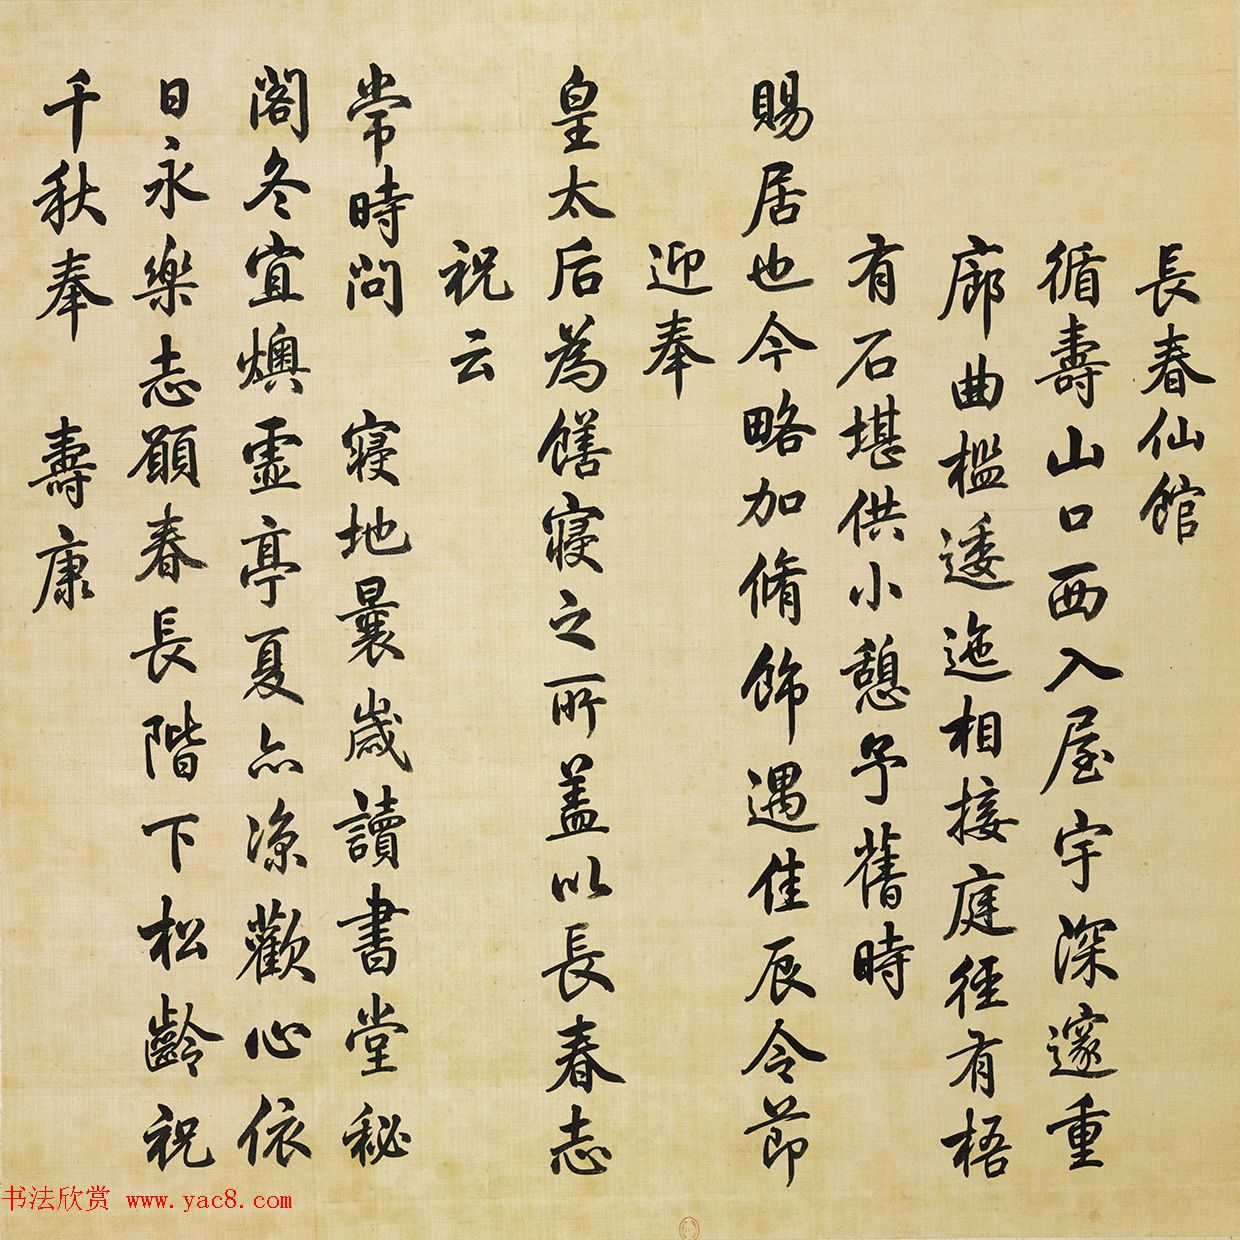 長春仙館
循壽山口西入屋宇深邃重
廊曲檻逶迤相接庭徑有梧
有石堪供小憩予舊時
賜居也今略加脩飾遇佳辰令節
迎奉
皇太后為饍寝之所蓋以長春志
祝云
常時問 寝地曩歲讀書堂秘
閣冬宜燠霊亭夏亦涼歡心依
日永樂志願春長階下松齡祝
千秋奉 壽康
书法欣赏 www.yac8.com